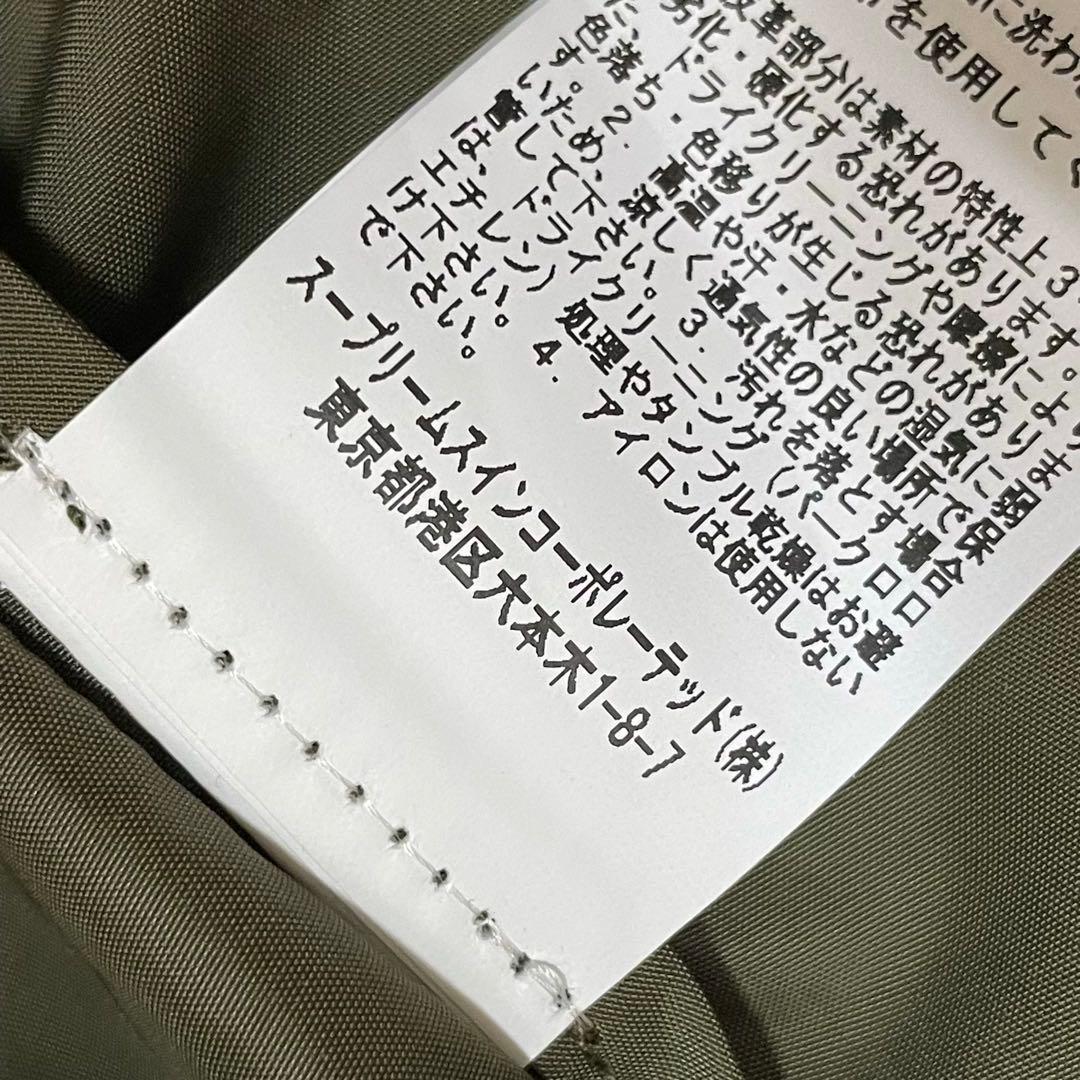 に洗わな
を使用してく
皮革部分は素材の特性上3
劣化・硬化する恐れがあります。
た、ドライクリーニングや摩擦により
色落ち・色移りが生じる恐れがありま
す。2. 高温や汗・水などの湿気に弱
いため、涼しく通気性の良い場所で保
管して下さい。3. 汚れを落とす場合
は、ドライクリーニング(パークロロ
エチレン)処理やタンブル乾燥はお避
け下さい。4. アイロンは使用しない
で下さい。
スープリームスインコーポレーテッド(株)
東京都港区六本木1-8-7